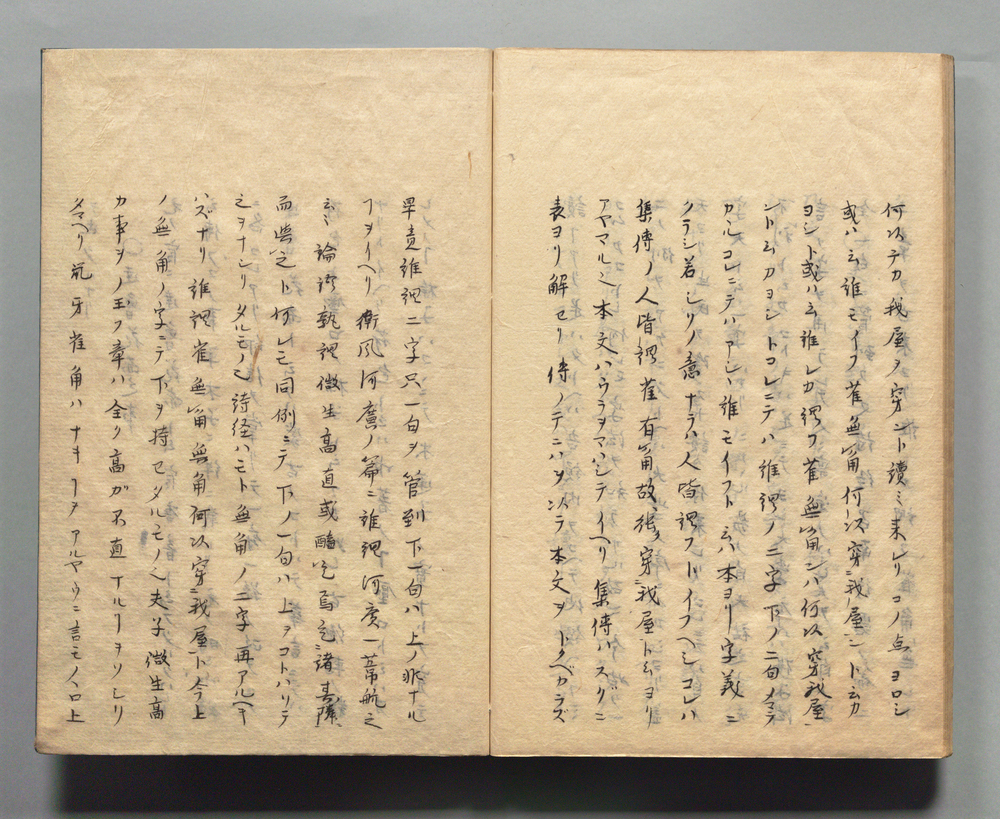 何以テカ我屋ヲ穿ント讀ミ来レリコノ点ヨロシ
或ハ云誰モイフ雀無角何以穿我屋ントムカ
ヨシト或ハ云誰レカ謂フ雀無角ンハ何以穿我屋
ントムカヨシトコレニテハ誰謂ノ二字下ノ二句ノマテ
カルコレニテハアシハ誰モイフト云ハ本ヨリ字義ニ
クラシ若シソノ意ナラハ人皆謂フトイフヘシコレハ
集傳ノ人皆謂雀有角故能穿我屋トムヨリ
アヤマル也本文ハウラヲマハシテイヘリ 集傳ハスグニ
表ヨリ解セリ傳ノテニハヲ以テ本文ヲトクベカラズ
畢責誰謂二字只一句ヲ管到下一句ハ上ノ非ナル
ヿヲイヘリ衛風河廣ノ篇ニ誰謂河廣一葦航之
云〻論語孰謂微生高直或醯乞焉乞諸其隣
而與之ト何レモ同例ニテ下ノ一句ハ上ヲコトハリテ
之ヲナシリタルモノ也詩経ハモト無角ノ二字再アルヘキ
ハズナリ誰謂雀無角無角何以穿我屋ト今上
ノ無角ノ字ニテ下ヲ持セタルモノ也夫子微生高
カ事ヲノ玉フ章ハ全ク高ガ不直ナルヿヲソシリ
タマヘリ鼠牙雀角ハナキヿヲアルヤウニ言モノ口上